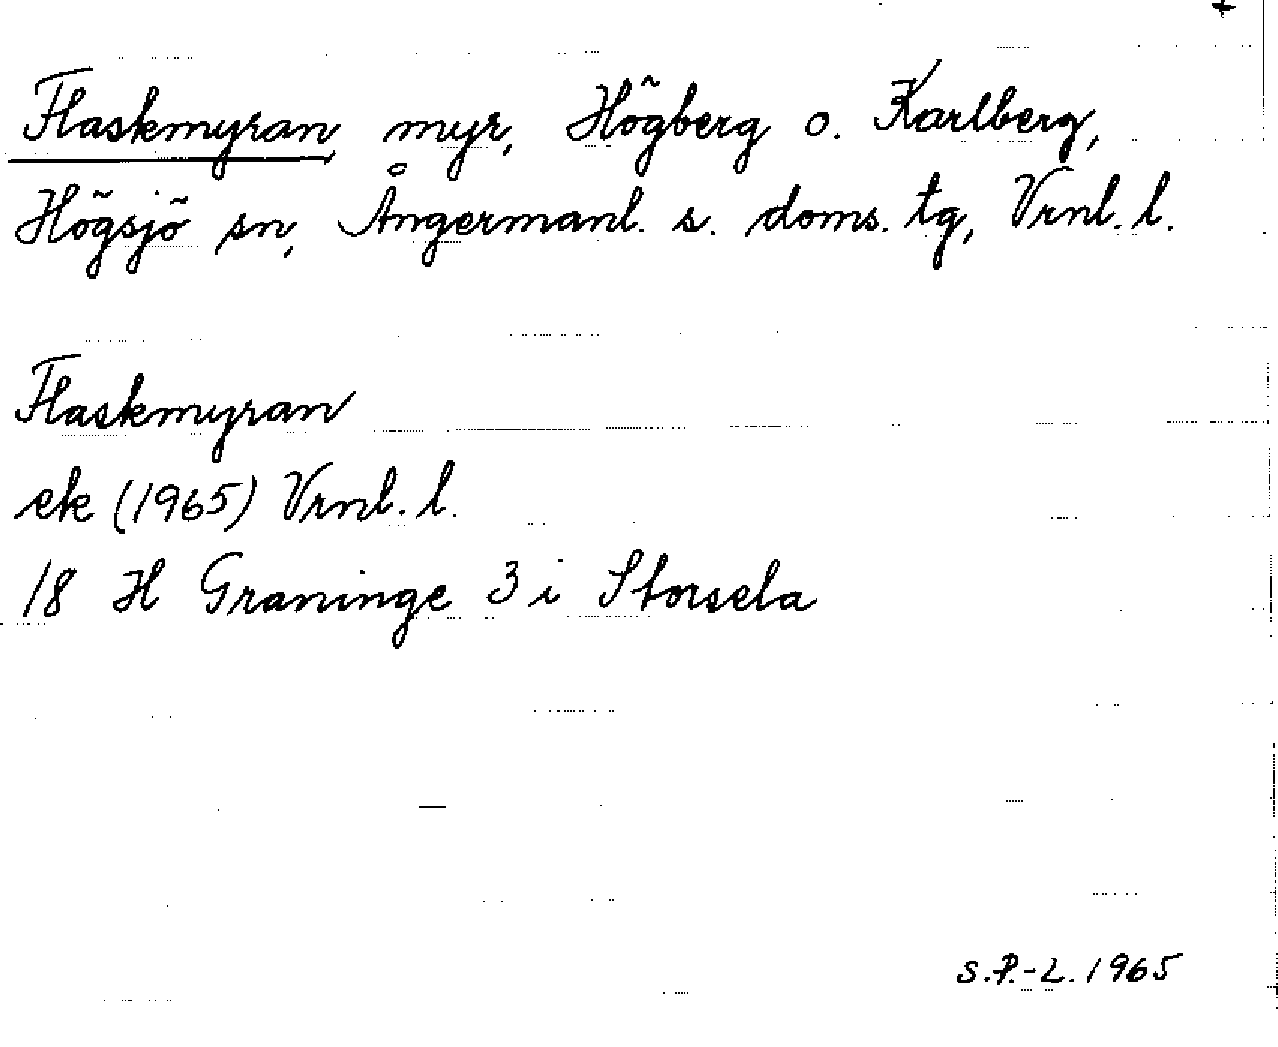 +
Flaskmyran myr, Högberg o. Karlberg,
Högsjö sn, Ångermanl. s. doms. tg, Vrnl. l.
Flaskmyran
ek (1965) Vrnl. l.
18 H Graninge 3 i Storsela
S.P.-L. 1965